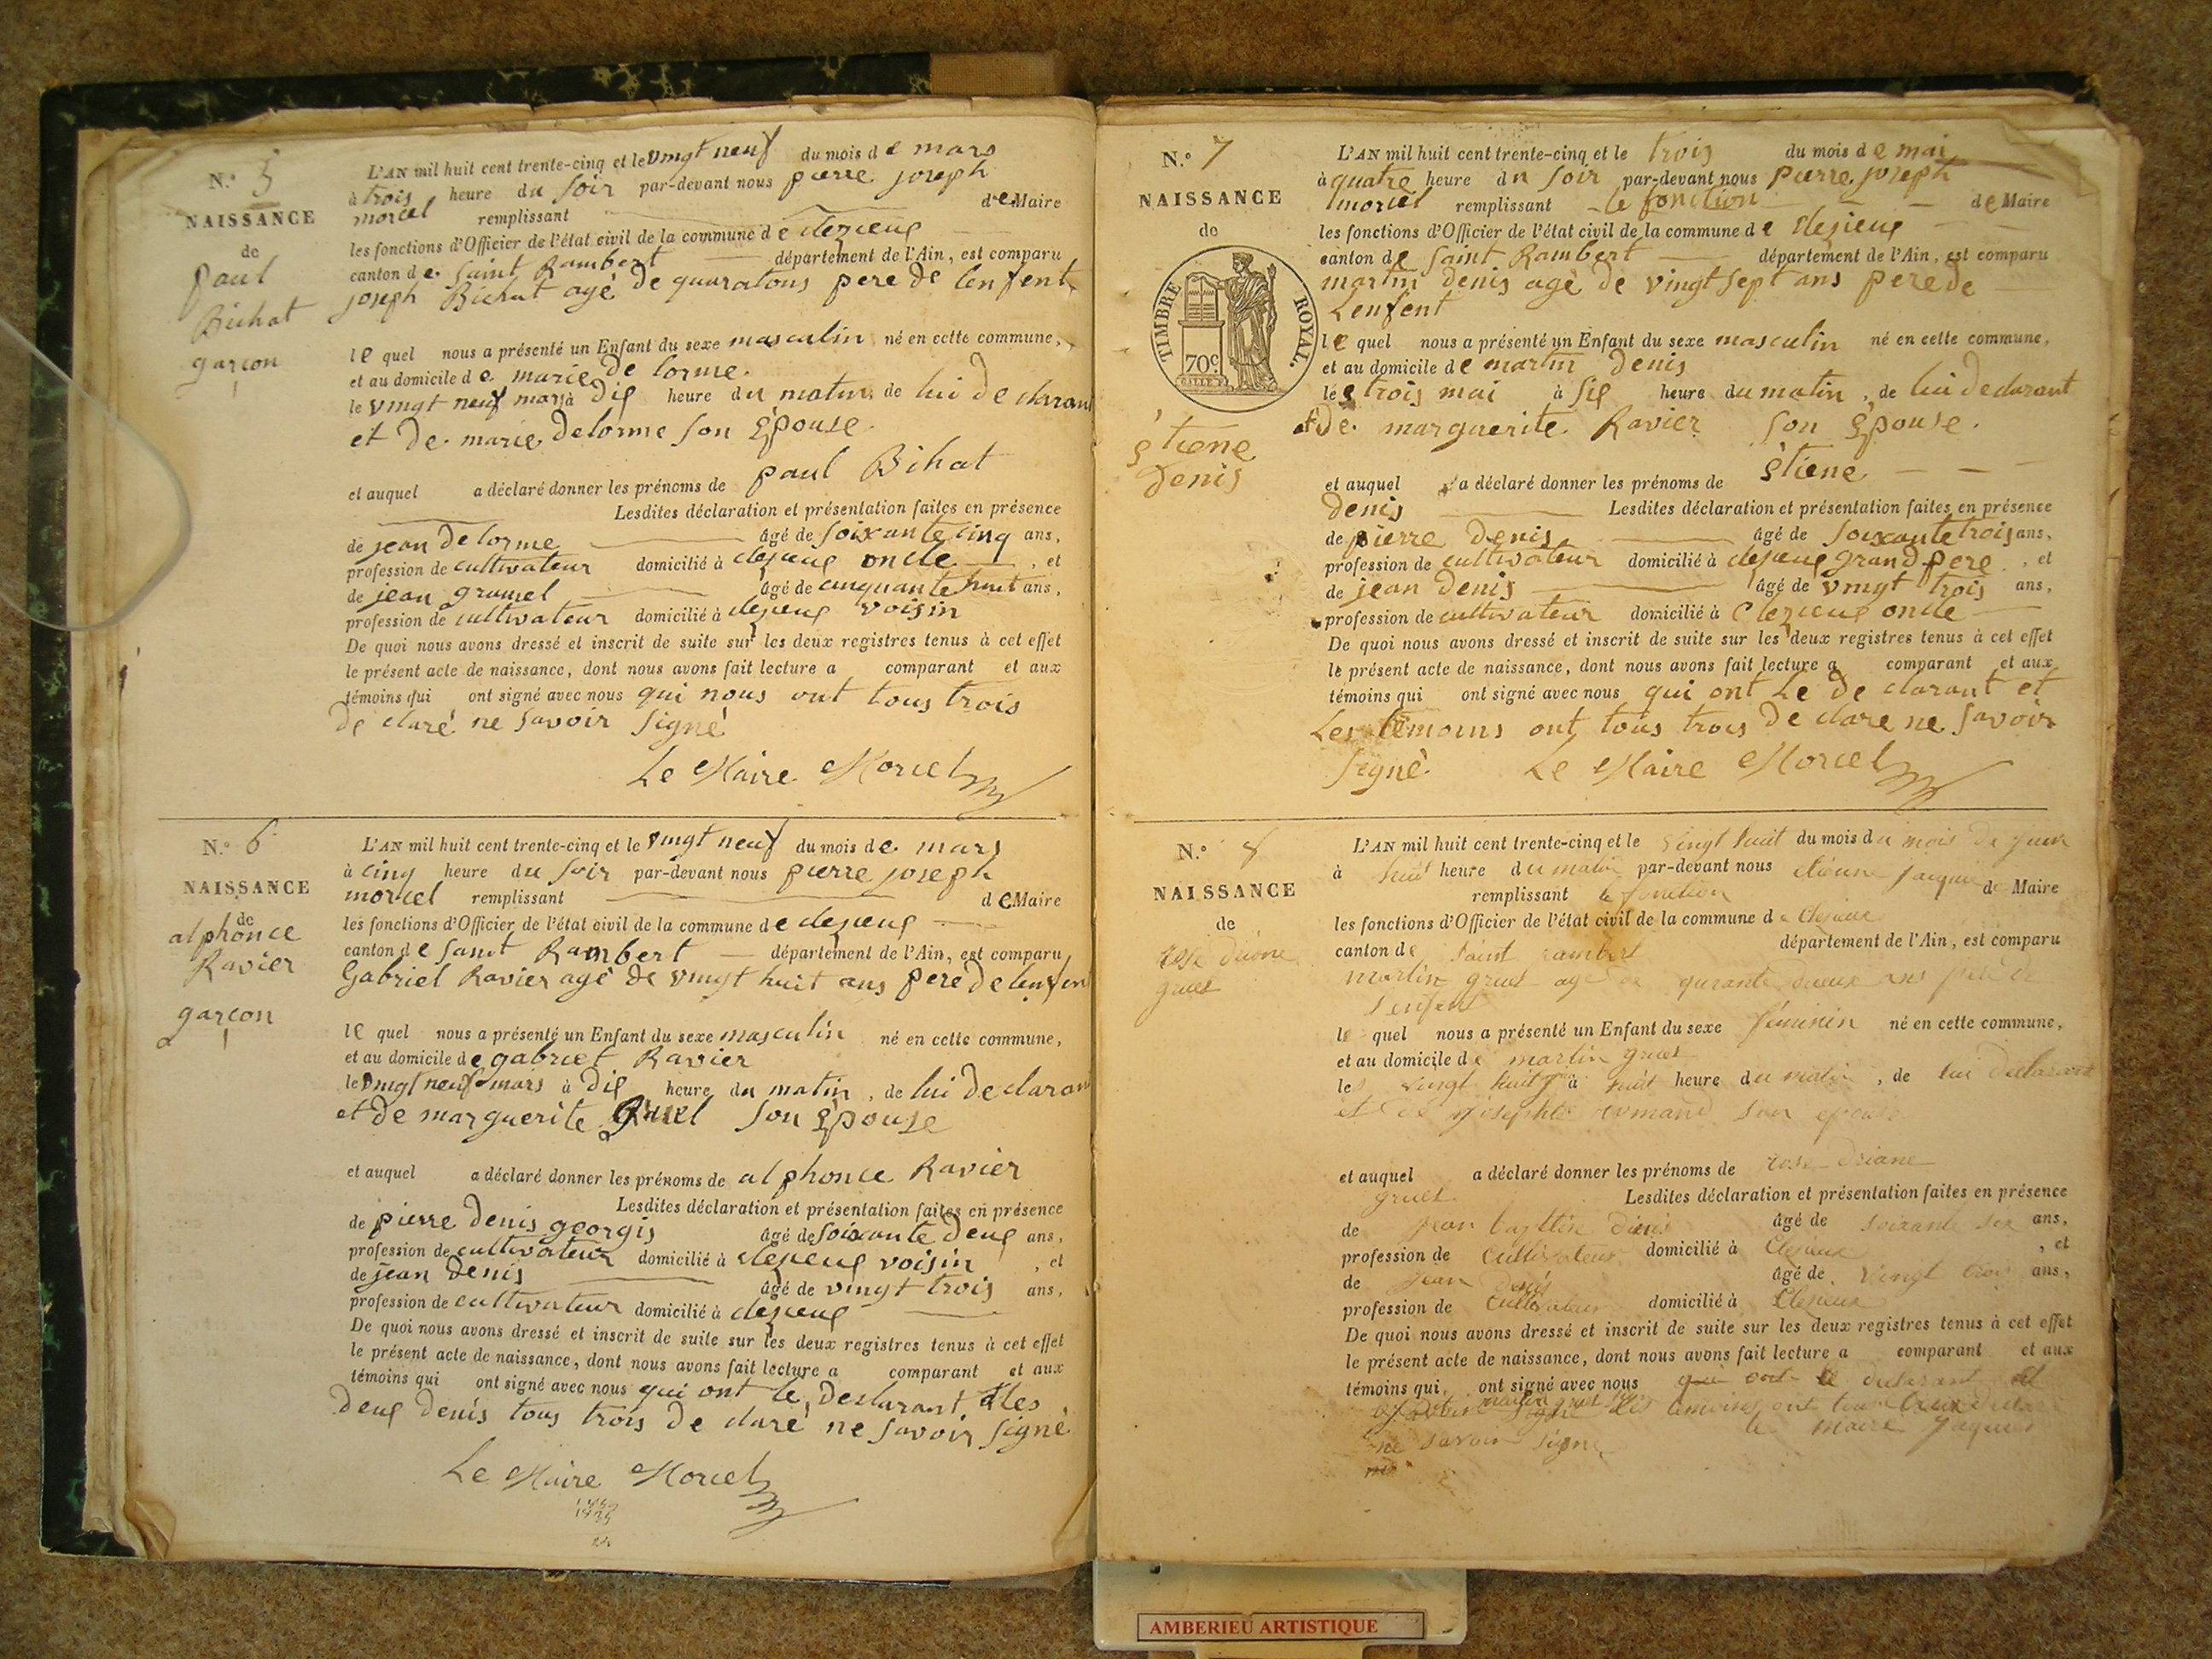 N.° 5
NAISSANCE
de
paul
Bichat
garçon
L'AN mil huit cent trente-cinq et le vingt neuf du mois de mars
à trois heure du soir par-devant nous pierre joseph
morcel remplissant de Maire
les fonctions d'Officier de l'état civil de la commune de clezieux
canton de Saint Rambert département de l'Ain, est comparu
joseph Bichat agé de quaratons pere de lenfent
le quel nous a présenté un Enfant du sexe masculin né en cette commune,
et au domicile de marie de lorme.
le vingt neuf mars à dix heure du matin, de lui de clarant
et de marie delorme son épouse.
et auquel a déclaré donner les prénoms de paul Bihat
Lesdites déclaration et présentation faites en présence
de jean delorme âgé de soixante cinq ans,
profession de cultivateur domicilié à clezieux oncle, et
de jean grumel âgé de cinquante huit ans,
profession de cultivateur domicilié à clezieux voisin
De quoi nous avons dressé et inscrit de suite sur les deux registres tenus à cet effet
le présent acte de naissance, dont nous avons fait lecture a comparant et aux
témoins qui ont signé avec nous qui nous ont tous trois
de claré ne savoir signé
Le Maire Morcel
N.° 6
NAISSANCE
de
alphonce
Ravier
garçon
L'AN mil huit cent trente-cinq et le vingt neuf du mois de mars
à cinq heure du soir par-devant nous pierre joseph
morcel remplissant de Maire
les fonctions d'Officier de l'état civil de la commune de clezieux
canton de Saint Rambert département de l'Ain, est comparu
Gabriel Ravier agé de vingt huit ans pere de lenfen
le quel nous a présenté un Enfant du sexe masculin né en cette commune,
et au domicile de gabriel Ravier
le vingt neuf mars à dix heure du matin, de lui de claran
et de marguerite gruel son épouse
et auquel a déclaré donner les prénoms de alphonce Ravier
Lesdites déclaration et présentation faites en présence
de pierre denis georgis âgé de soixante deux ans,
profession de cultivateur domicilié à clezieux voisin, et
de jean denis âgé de vingt trois ans,
profession de cultivateur domicilié à clezieux
De quoi nous avons dressé et inscrit de suite sur les deux registres tenus à cet effet
le présent acte de naissance, dont nous avons fait lecture a comparant et aux
témoins qui ont signé avec nous qui ont le declarant et les
deux denis tous trois de claré ne savoir signé
Le Maire Morcel
N.° 7
NAISSANCE
de
TIMBRE ROYAL.
70c.
étiene
Denis
L'AN mil huit cent trente-cinq et le trois du mois de mai
à quatre heure du soir par-devant nous pierre joseph
morcel remplissant le fonction de Maire
les fonctions d'Officier de l'état civil de la commune de clezieux
canton de Saint Rambert département de l'Ain, est comparu
martin denis agé de vingt sept ans pere de
Lenfent
le quel nous a présenté un Enfant du sexe masculin né en cette commune,
et au domicile de martin Denis
le trois mai à six heure du matin, de lui declarant
et de marguerite Ravier son épouse.
et auquel a déclaré donner les prénoms de étiene
denis Lesdites déclaration et présentation faites en présence
de pierre denis âgé de soixante trois ans,
profession de cultivateur domicilié à clezieux grand pere, et
de jean denis âgé de vingt trois ans,
profession de cultivateur domicilié à Clezieux oncle
De quoi nous avons dressé et inscrit de suite sur les deux registres tenus à cet effet
le présent acte de naissance, dont nous avons fait lecture a comparant et aux
témoins qui ont signé avec nous qui ont Le de clarant et
Les témoins ont tous trois de clare ne savoir
signé. Le Maire Morcel
N.° 8
NAISSANCE
de
rose
gruel
L'AN mil huit cent trente-cinq et le vingt huit du mois du mois de juin
à huit heure du matin par-devant nous étienne jaquier de Maire
remplissant le fonction
les fonctions d'Officier de l'état civil de la commune de clezieux
canton de saint rambert département de l'Ain, est comparu
martin gruel agé de qurante deux ans pere de
l'enfant
le quel nous a présenté un Enfant du sexe féminin né en cette commune,
et au domicile de martin gruel
le vingt huit à huit heure du matin, de lui declarant
et de son epouse
et auquel a déclaré donner les prénoms de rose driane
gruel Lesdites déclaration et présentation faites en présence
de jean denis âgé de soixante six ans,
profession de cultivateur domicilié à clezieux, et
de jean denis âgé de vingt trois ans,
profession de cultivateur domicilié à Clezieux
De quoi nous avons dressé et inscrit de suite sur les deux registres tenus à cet effet
le présent acte de naissance, dont nous avons fait lecture a comparant et aux
témoins qui ont signé avec nous qui ont le declarant et
martin gruel signé les temoins ont tous
le maire Jaquier
ne savoir signé
AMBERIEU ARTISTIQUE